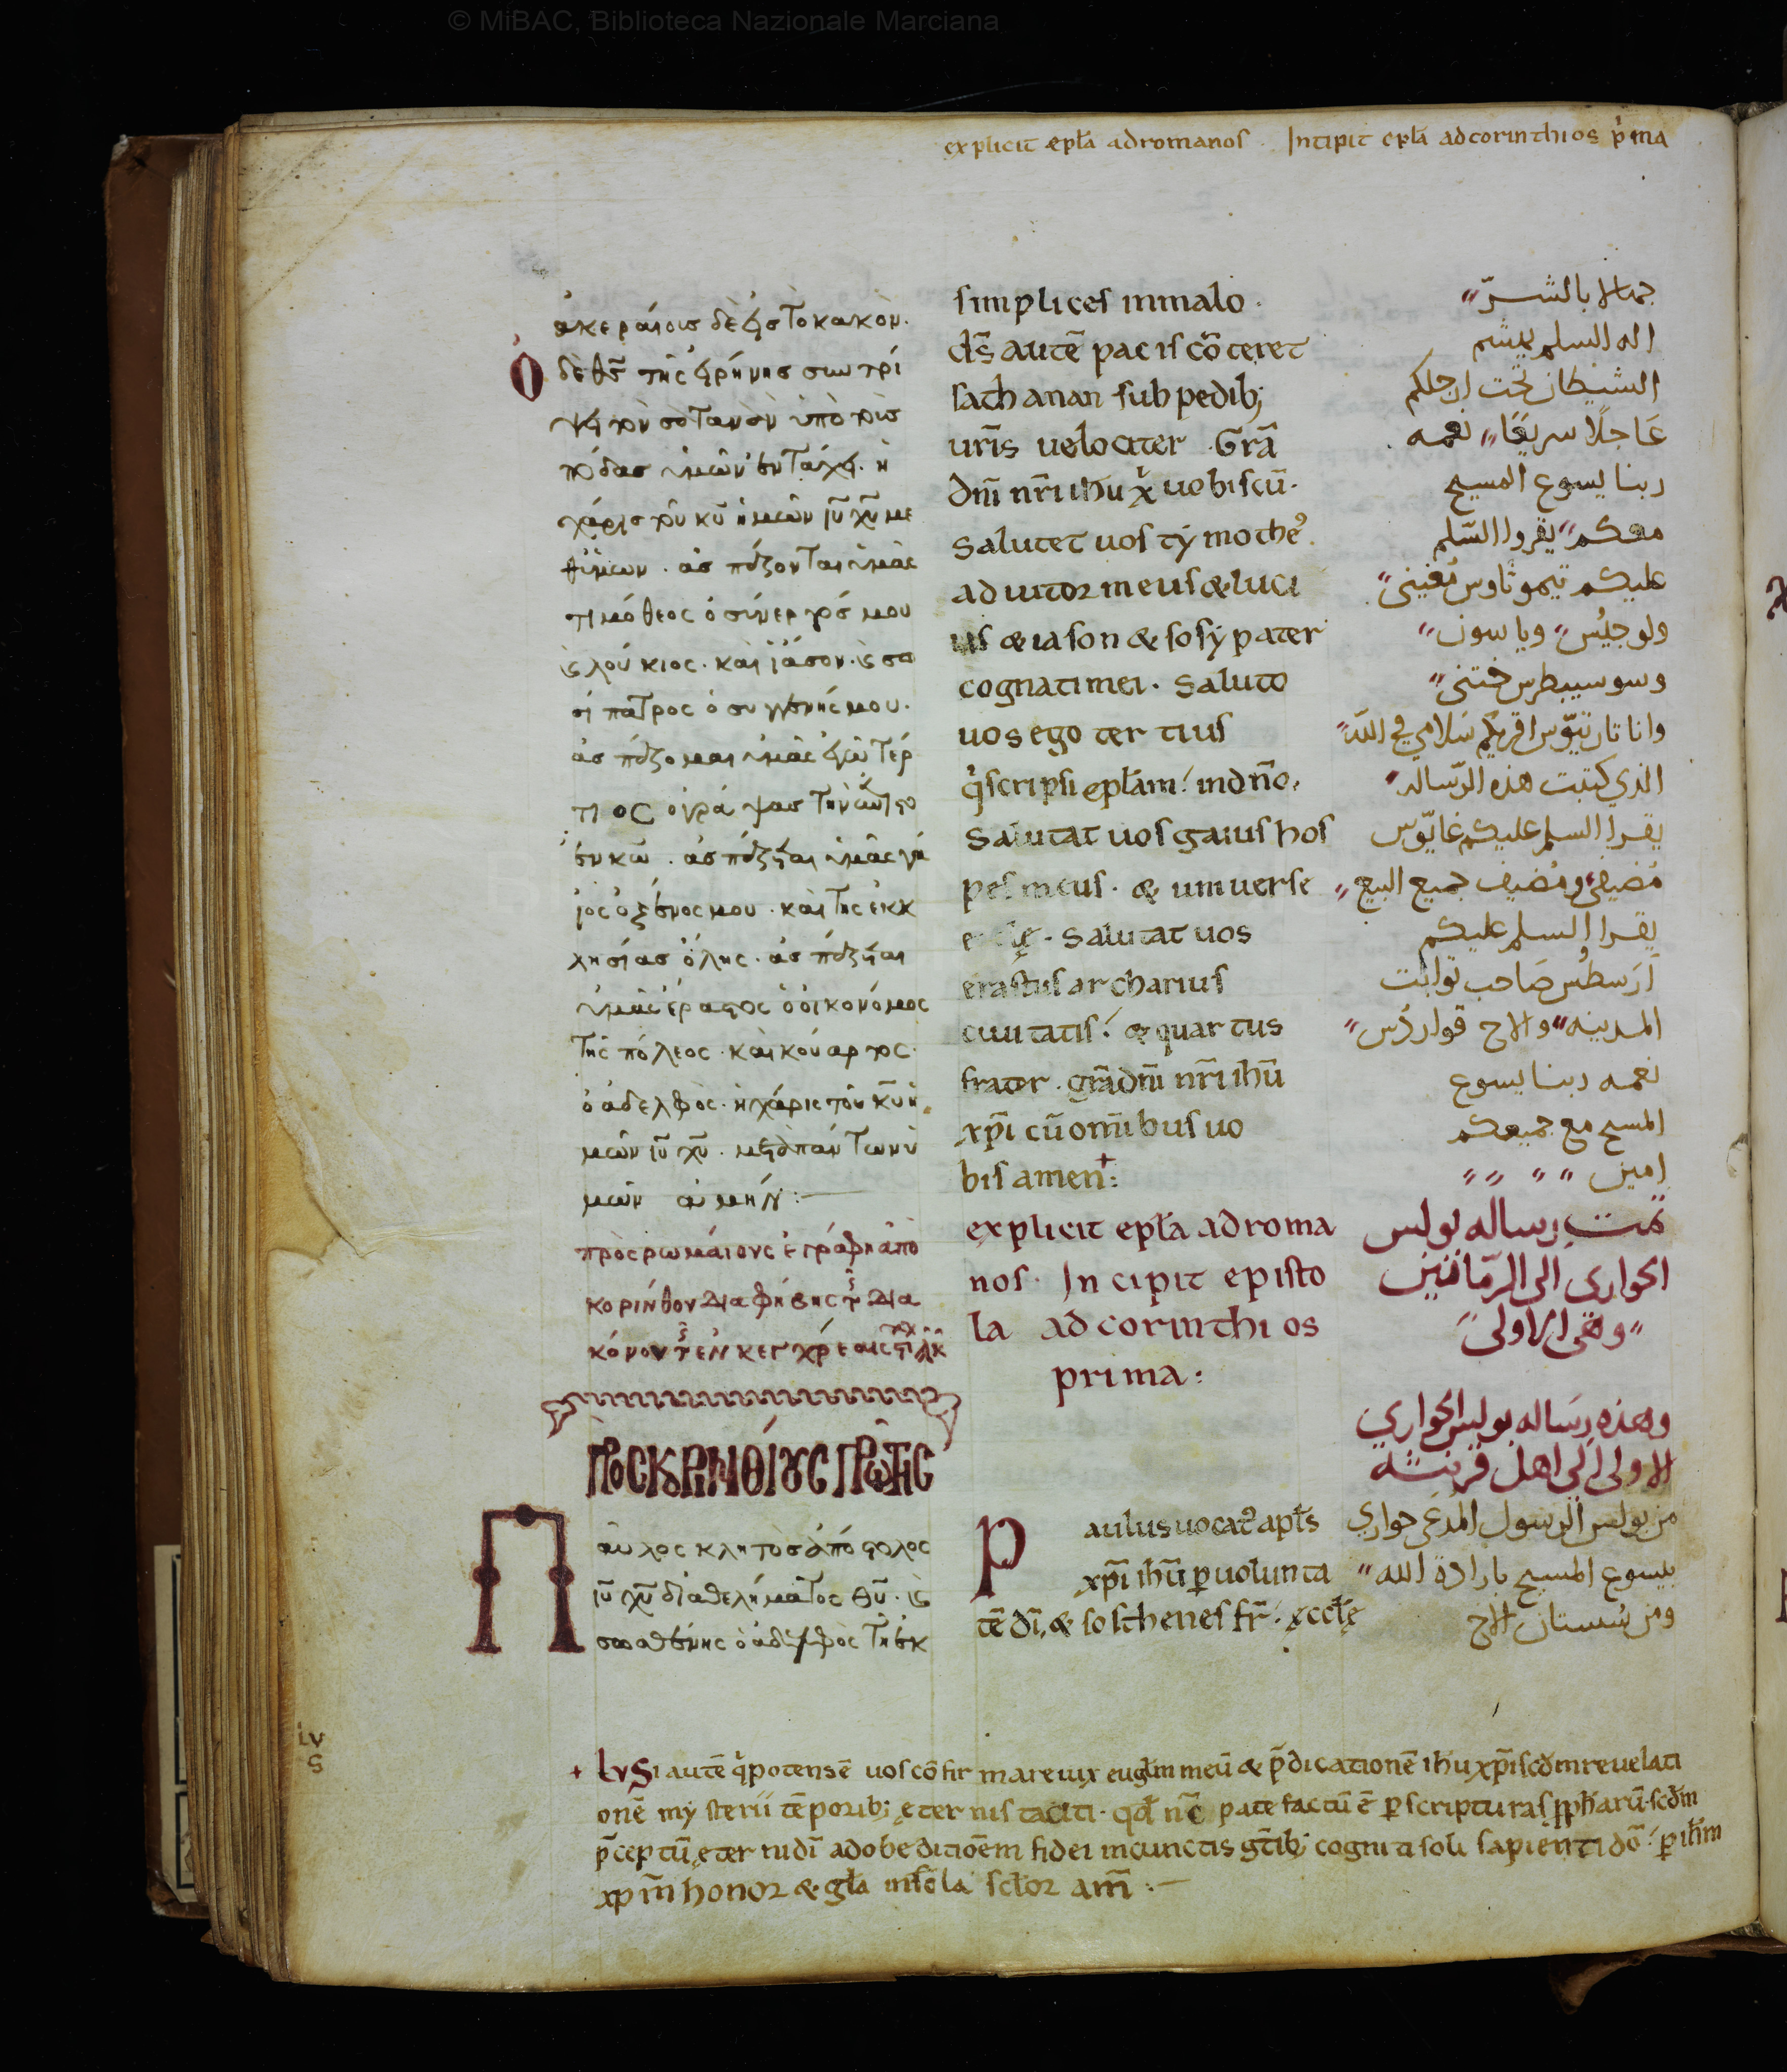 © MiBAC, Biblioteca Nazionale Marciana
explicit epła adromanos . Intipit epła adcorinthios p̃ma
ἀκεραίοισ δὲ εἰσ τὸ κακὸν.
Ο δὲ θς̅ τῆς εἰρήνησ συντρί
ψει τὸν σατανὰν ὑπὸ τοὺσ
πόδασ ὑμῶν ἐν τάχει. ἡ
χάρισ τοῦ κυ̅ ἡμῶν ιυ̅ χυ̅ με
θ' ὑμων . ἀσπάζονται ὑμᾶς
τιμόθεος ὁ σύνεργόσ μου
ϗ λούκιος . καὶ ἰάσον . ϗ σω
σίπατρος ὁ συγγενής μου .
ἀσπάζομαι ὑμᾶς ἐγὼ τέρ
τιος ὁ γράψασ τὴν ἐπιστο
ἐν κω̅ . ἀσπάζεται ὑμᾶς γά
ιος ὁ ξένος μου . καὶ τῆς ἐκκ
λησίασ ὅλης . ἀσπάζεται
ὑμᾶς ἔραστος ὁ οἰκονόμος
τῆς πόλεος . καὶ κούαρτος .
ὁ ἀδελφὸς . ἡ χάρις τοῦ κυ̅ ἡ
μῶν ιυ̅ χυ̅ . μετὰ πάντων ὑ
μῶν ἀμήν :
πρὸς ρωμάιους ἐγράφη ἀπὸ
κορίνθου διὰ φήβης τῆς δια
κόνου τῆς ἐν κεγχρέαις
ΠΡΟΣ ΚΟΡΙΝΘΙΟΥΣ ΠΡΩΤΗΣ
Παυλος κλητὸσ ἀπόστολος
ιυ̅ χυ̅ διὰ θελήματος θυ̅ . ϗ
σωσθένης ὁ ἀδελφὸς τῇ ἐκ
simplices inmalo .
ds̅ autē pacis cōteret
sathanan sub pedib;
uris̅ uelociter . Grā
dnī nrī ihū x̅ uobiscū .
Salutet uos tymothe᾽ .
adiutor meus & luci
us & iason & sosypater
cognati mei . Saluto
uos ego tertius
qͥ scripsi epłam ! indño .
Salutat uos gaius hos
pes meus . & uniuerse
. Salutat uos
erastus archarius
ciuitatis ! & quartus
frater . grā dnī nrī ihū
xpī cū omībus uo
bis amen :
explicit epła adroma
nos . Incipit episto
la ad corinthios
prima :
Paulus uocat᾽ aptłs
xpī ihū p uolunta
tē dī , & sosthenes fr̄ ! ęccłę
جهالا بالشـرّ
اله السلم يهشم
الشيطان تحت ارجلكم
عَاجلًا سريعًا نعمه
ربنا يسوع المسيح
معكم يقروا السّلم
عليكم تيموثاوس مُعينى
ولوجيُس وياسون
وسوسيبطرس ختنى
وانا تارتيّوس اقريكم سَلامي في الله
الذي كتبت هذه الرّساله
يقرا السلم عليكم غايّوس
مُضيفى ومُضيف جميع البيع
يقرا السلم عليكم
اَرَسطُس صَاحب توابت
المدينه والاخ قواردُس
نعمه ربنا يسوع
المسيح مع جميعكم
امين
تمت رساله بولس
الحوارى الى الرّمانيين
وهى الاولى
وهذه رسَاله بولس الحواري
الاولى الي اهل قرنتيه
من بولس الرسول المدعَى حواري
بيسوع المسيح بارادة الله
ومن سُستان الاخ
LVS
+ LVSi autē qͥ potens ē uos cōfirmare iuxͭ euglm meū & p̄dicationē ihu xpī scdm reuelati
onē mysterii tēporib; ęternis taciti . qd nc̄ patefactū ē p scripturas ppharū . scdm
p̄ceptū ęterni dī ad obeditiōem fidei in cunctis gtīb; cogniti soli sapienti dō ! p ihm
xpm̄ honor & gła in scła scłor am̄ :